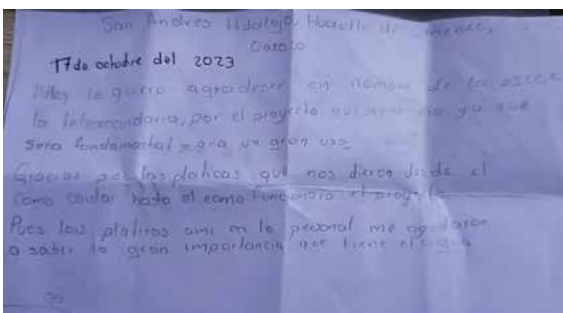 San Andres Hidalgo, Huautla de Jimenez,
Oaxaca
17 de octubre del 2023
le quiero agradecer en nombre de la escue
la telesecundaria, por el proyecto ya que
sera fundamental para un gran uso
Gracias por las platicas que nos dieron desde el
como cuidar hasta el como funciona el proyecto
Pues las platicas ami en lo personal me ayudaron
a saber la gran importancia que tiene el agua